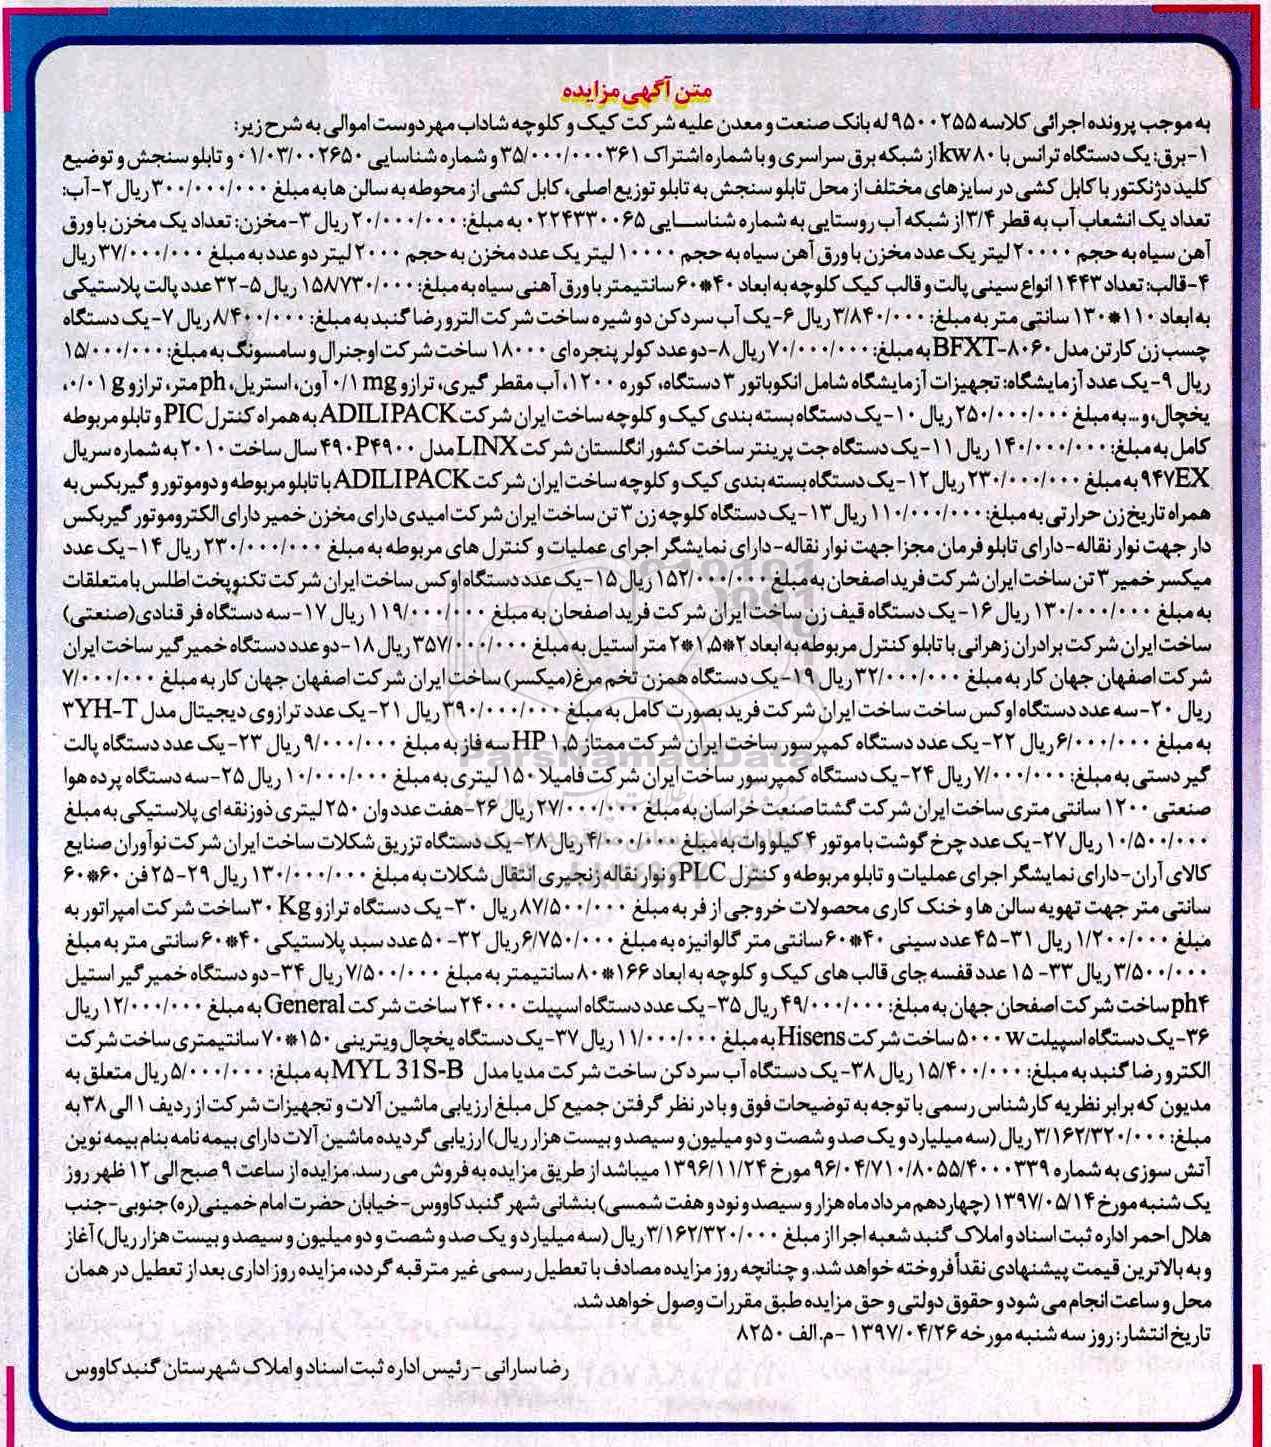 متن آگهی مزایده
به موجب پرونده اجرائی کلاسه ۹۵۰۰۲۵۵ له بانک صنعت و معدن علیه شرکت کیک و کلوچه شاداب مهر دوست اموالی به شرح زیر:
۱-برق: یک دستگاه ترانس با ۸۰ kw از شبکه برق سراسری و با شماره اشتراک ۳۵/۰۰۰/۰۰۰۳۶۱ و شماره شناسایی ۰۱/۰۳/۰۰۲۶۵۰ و تابلو سنجش و توضیع
کلید دژنکتور با کابل کشی در سایزهای مختلف از محل تابلو سنجش به تابلو توزیع اصلی، کابل کشی از محوطه به سالن ها به مبلغ ۳۰۰/۰۰۰/۰۰۰ ریال ۲-آب:
تعداد یک انشعاب آب به قطر ۳/۴ از شبکه آب روستایی به شماره شناسایی ۰۲۲۴۳۳۰۰۶۵ به مبلغ: ۲۰/۰۰۰/۰۰۰ ریال ۳-مخزن: تعداد یک مخزن با ورق
آهن سیاه به حجم ۲۰۰۰۰ لیتر یک عدد مخزن با ورق آهن سیاه به حجم ۱۰۰۰۰ لیتر یک عدد مخزن به حجم ۲۰۰۰ لیتر دو عدد به مبلغ ۳۷/۰۰۰/۰۰۰ ریال
۴-قالب: تعداد ۱۴۴۳ انواع سینی پالت و قالب کیک کلوچه به ابعاد ۴۰*۶۰ سانتیمتر با ورق آهنی سیاه به مبلغ: ۱۵۸/۷۳۰/۰۰۰ ریال ۵-۳۲ عدد پالت پلاستیکی
به ابعاد ۱۱۰*۱۳۰ سانتی متر به مبلغ: ۳/۸۴۰/۰۰۰ ریال ۶-یک آب سردکن دو شیره ساخت شرکت الترو رضا گنبد به مبلغ: ۸/۴۰۰/۰۰۰ ریال ۷-یک دستگاه
چسب زن کارتن مدل BFXT-۸۰۶۰ به مبلغ: ۷۰/۰۰۰/۰۰۰ ریال ۸-دو عدد کولر پنجره ای ۱۸۰۰۰ ساخت شرکت اوجنرال و سامسونگ به مبلغ: ۱۵/۰۰۰/۰۰۰
ریال ۹-یک عدد آزمایشگاه: تجهیزات آزمایشگاه شامل انکوباتور ۳ دستگاه، کوره ۱۲۰۰، آب مقطر گیری، ترازو ۰/۱ mg آون، استریل، ph متر، ترازو ۰/۰۱ g،
یخچال، و... به مبلغ ۲۵۰/۰۰۰/۰۰۰ ریال ۱۰-یک دستگاه بسته بندی کیک و کلوچه ساخت ایران شرکت ADILIPACK به همراه کنترل PIC و تابلو مربوطه
کامل به مبلغ: ۱۴۰/۰۰۰/۰۰۰ ریال ۱۱-یک دستگاه جت پرینتر ساخت کشور انگلستان شرکت LINX مدل ۴۹۰P۴۹۰۰ سال ساخت ۲۰۱۰ به شماره سریال
۹۴۷EX به مبلغ ۲۳۰/۰۰۰/۰۰۰ ریال ۱۲-یک دستگاه بسته بندی کیک و کلوچه ساخت ایران شرکت ADILIPACK با تابلو مربوطه و دو موتور و گیربکس به
همراه تاریخ زن حرارتی به مبلغ: ۱۱۰/۰۰۰/۰۰۰ ریال ۱۳-یک دستگاه کلوچه زن ۳ تن ساخت ایران شرکت امیدی دارای مخزن خمیر دارای الکتروموتور گیربکس
دار جهت نوار نقاله-دارای تابلو فرمان مجزا جهت نوار نقاله-دارای نمایشگر اجرای عملیات و کنترل های مربوطه به مبلغ ۲۳۰/۰۰۰/۰۰۰ ریال ۱۴-یک عدد
میکسر خمیر ۳ تن ساخت ایران شرکت فرید اصفحان به مبلغ ۱۵۲/۰۰۰/۰۰۰ ریال ۱۵-یک عدد دستگاه اوکس ساخت ایران شرکت تکنوپخت اطلس با متعلقات
به مبلغ ۱۳۰/۰۰۰/۰۰۰ ریال ۱۶-یک دستگاه قیف زن ساخت ایران شرکت فرید اصفحان به مبلغ ۱۱۹/۰۰۰/۰۰۰ ریال ۱۷-سه دستگاه فر قنادی(صنعتی)
ساخت ایران شرکت برادران زهرانی با تابلو کنترل مربوطه به ابعاد ۲*۱،۵*۲ متر استیل به مبلغ ۳۵۷/۰۰۰/۰۰۰ ریال ۱۸-دو عدد دستگاه خمیر گیر ساخت ایران
شرکت اصفهان جهان کار به مبلغ ۳۲/۰۰۰/۰۰۰ ریال ۱۹-یک دستگاه همزن تخم مرغ(میکسر) ساخت ایران شرکت اصفهان جهان کار به مبلغ ۷/۰۰۰/۰۰۰
ریال ۲۰-سه عدد دستگاه اوکس ساخت ساخت ایران شرکت فرید بصورت کامل به مبلغ ۳۹۰/۰۰۰/۰۰۰ ریال ۲۱-یک عدد ترازوی دیجیتال مدل ۳YH-T
به مبلغ ۶/۰۰۰/۰۰۰ ریال ۲۲-یک عدد دستگاه کمپرسور ساخت ایران شرکت ممتاز ۱،۵ HP سه فاز به مبلغ ۹/۰۰۰/۰۰۰ ریال ۲۳-یک عدد دستگاه پالت
گیر دستی به مبلغ: ۷/۰۰۰/۰۰۰ ریال ۲۴-یک دستگاه کمپرسور ساخت ایران شرکت فامیلا ۱۵۰ لیتری به مبلغ ۱۰/۰۰۰/۰۰۰ ریال ۲۵-سه دستگاه پرده هوا
صنعتی ۱۲۰۰ سانتی متری ساخت ایران شرکت گشتا صنعت خراسان به مبلغ ۲۷/۰۰۰/۰۰۰ ریال ۲۶-هفت عدد وان ۲۵۰ لیتری ذوزنقه ای پلاستیکی به مبلغ
۱۰/۵۰۰/۰۰۰ ریال ۲۷-یک عدد چرخ گوشت با موتور ۴ کیلو وات به مبلغ ۴/۰۰۰/۰۰۰ ریال ۲۸-یک دستگاه تزریق شکلات ساخت ایران شرکت نوآوران صنایع
کالای آران-دارای نمایشگر اجرای عملیات و تابلو مربوطه و کنترل PLC و نوار نقاله زنجیری انتقال شکلات به مبلغ ۱۳۰/۰۰۰/۰۰۰ ریال ۲۹-۲۵ فن ۶۰*۶۰
سانتی متر جهت تهویه سالن ها و خنک کاری محصولات خروجی از فر به مبلغ ۸۷/۵۰۰/۰۰۰ ریال ۳۰-یک دستگاه ترازو ۳۰ Kg ساخت شرکت امپراتور به
مبلغ ۱/۲۰۰/۰۰۰ ریال ۳۱-۴۵ عدد سینی ۴۰*۶۰ سانتی متر گالوانیزه به مبلغ ۶/۷۵۰/۰۰۰ ریال ۳۲-۵۰ عدد سبد پلاستیکی ۴۰*۶۰ سانتی متر به مبلغ
۳/۵۰۰/۰۰۰ ریال ۳۳-۱۵ عدد قفسه جای قالب های کیک و کلوچه به ابعاد ۱۶۶*۸۰ سانتیمتر به مبلغ ۷/۵۰۰/۰۰۰ ریال ۳۴-دو دستگاه خمیر گیر استیل
ph۴ ساخت شرکت اصفحان جهان به مبلغ: ۴۹/۰۰۰/۰۰۰ ریال ۳۵-یک عدد دستگاه اسپیلت ۲۴۰۰۰ ساخت شرکت General به مبلغ ۱۲/۰۰۰/۰۰۰ ریال
۳۶-یک دستگاه اسپیلت ۵۰۰۰ w ساخت شرکت Hisens به مبلغ ۱۱/۰۰۰/۰۰۰ ریال ۳۷-یک دستگاه یخچال ویترینی ۱۵۰*۷۰ سانتیمتری ساخت شرکت
الکترو رضا گنبد به مبلغ: ۱۵/۴۰۰/۰۰۰ ریال ۳۸-یک دستگاه آب سردکن ساخت شرکت مدیا مدل MYL 31S-B به مبلغ: ۵/۰۰۰/۰۰۰ ریال متعلق به
مدیون که برابر نظریه کارشناس رسمی با توجه به توضیحات فوق و با در نظر گرفتن جمیع کل مبلغ ارزیابی ماشین آلات و تجهیزات شرکت از ردیف ۱ الی ۳۸ به
مبلغ: ۳/۱۶۲/۳۲۰/۰۰۰ ریال (سه میلیارد و یک صد و شصت و دو میلیون و سیصد و بیست هزار ریال) ارزیابی گردیده ماشین آلات دارای بیمه نامه بنام بیمه نوین
آتش سوزی به شماره ۹۶/۰۴/۷۱۰/۸۰۵۵/۴۰۰۰۳۳۹ مورخ ۱۳۹۶/۱۱/۲۴ میباشد از طریق مزایده به فروش می رسد. مزایده از ساعت ۹ صبح الی ۱۲ ظهر روز
یک شنبه مورخ ۱۳۹۷/۰۵/۱۴ (چهاردهم مرداد ماه هزار و سیصد و نود و هفت شمسی) بنشانی شهر گنبد کاووس-خیابان حضرت امام خمینی(ره) جنوبی-جنب
هلال احمر اداره ثبت اسناد و املاک گنبد شعبه اجرا از مبلغ ۳/۱۶۲/۳۲۰/۰۰۰ ریال (سه میلیارد و یک صد و شصت و دو میلیون و سیصد و بیست هزار ریال) آغاز
و به بالاترین قیمت پیشنهادی نقداً فروخته خواهد شد. و چنانچه روز مزایده مصادف با تعطیل رسمی غیر مترقبه گردد، مزایده روز اداری بعد از تعطیل در همان
محل و ساعت انجام می شود و حقوق دولتی و حق مزایده طبق مقررات وصول خواهد شد.
تاریخ انتشار: روز سه شنبه مورخه ۱۳۹۷/۰۴/۲۶ -م.الف ۸۲۵۰
رضا سارانی -رئیس اداره ثبت اسناد و املاک شهرستان گنبد کاووس
ParsNamadData